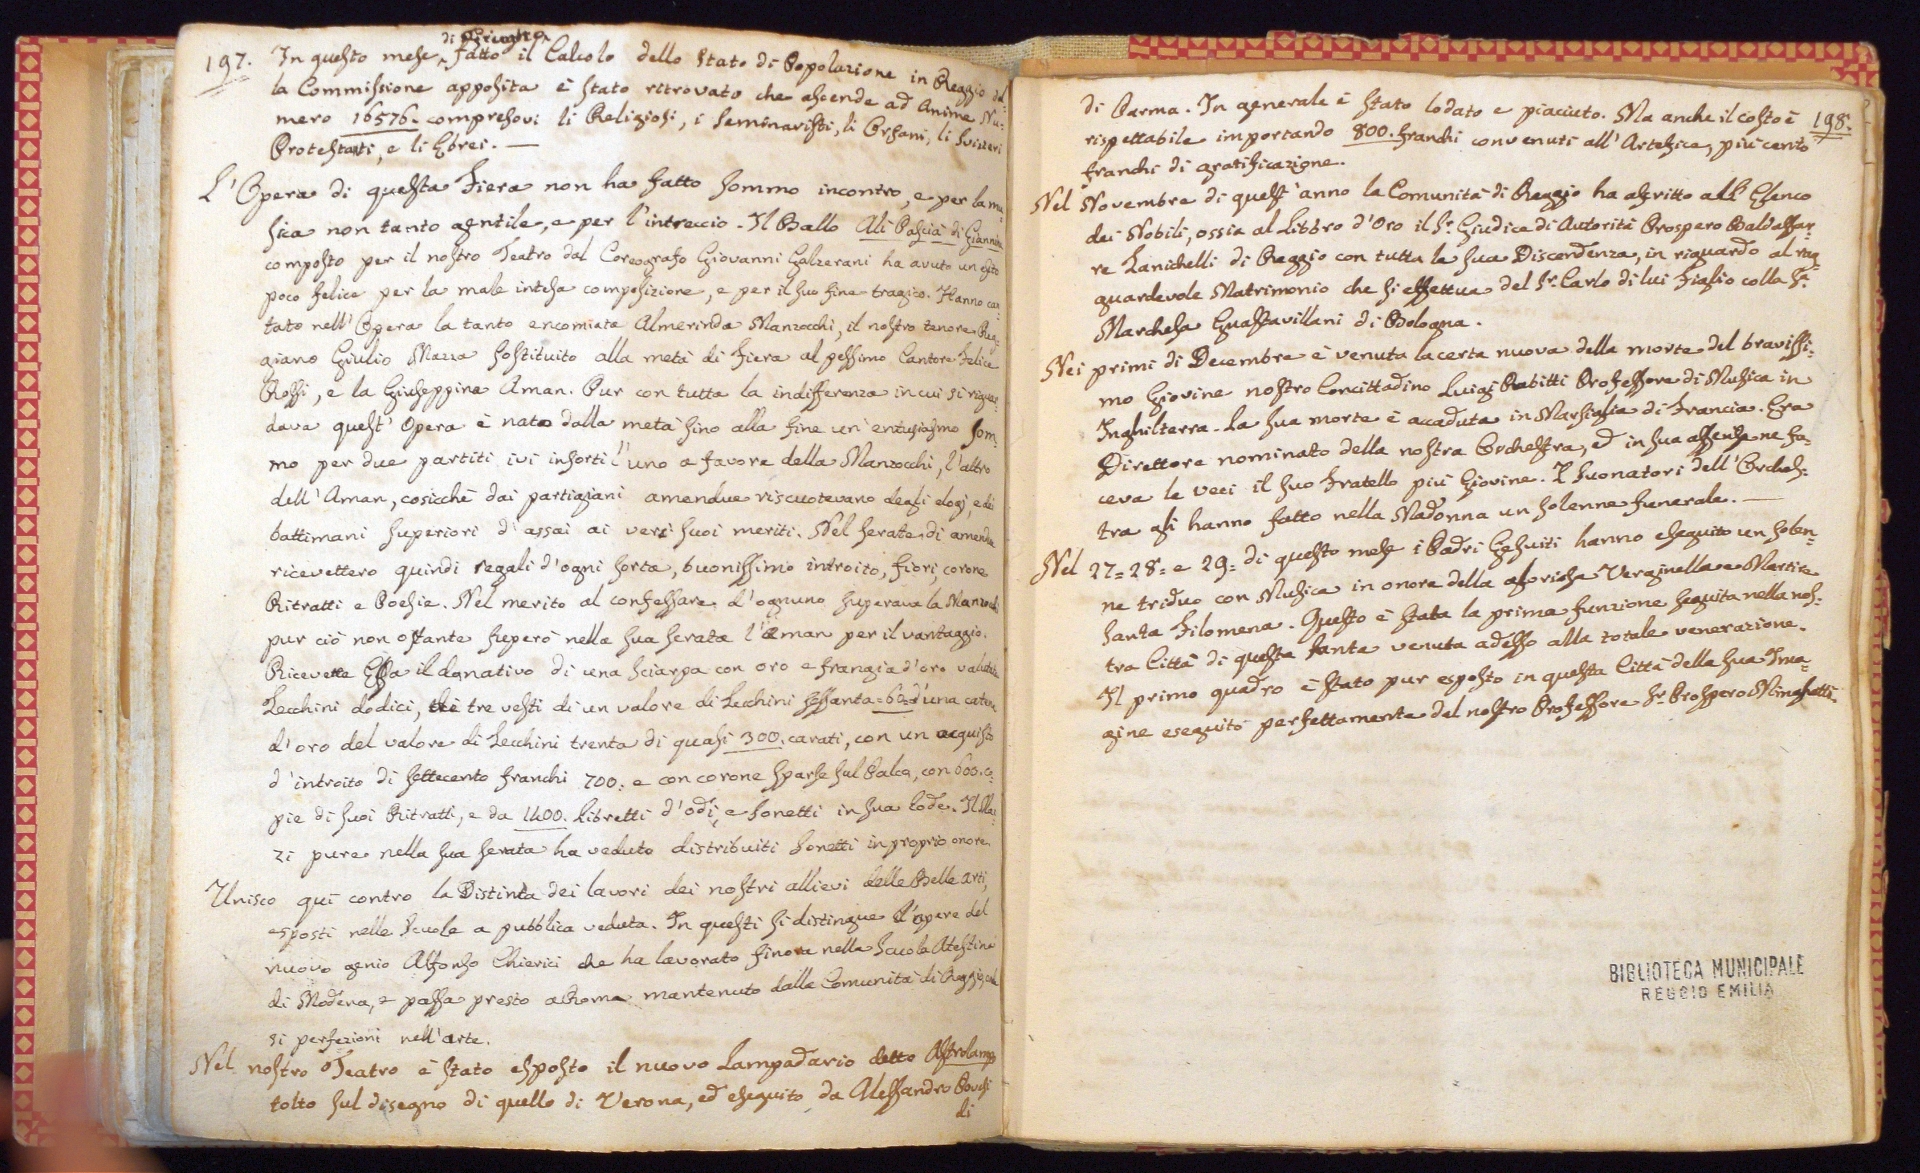 197.
di Giugno
In questo mese, fatto il Calcolo dello Stato di Popolazione in Reggio dal-
la Commissione apposita è stato ritrovato che ascende ad Anime Nu-
mero 16576. compresovi li Religiosi, i Seminaristi, li Orfani, li Svizzeri
Protestanti, e li Ebrei. —
L'Opera di questa Fiera non ha fatto sommo incontro, e per la mu-
sica non tanto gentile, e per l'intreccio. Il Ballo Alì Pascià di Giannina
composto per il nostro Teatro dal Coreografo Giovanni Galzerani ha avuto un esito
poco felice per la male intesa composizione, e per il suo fine tragico. Hanno can-
tato nell'Opera la tanto encomiata Almerinda Manzocchi, il nostro tenore Reg-
giano Giulio Mazza sostituito alla metà di Fiera al pessimo Cantore Felice
Rossi, e la Giuseppina Aman. Pur con tutta la indifferenza in cui si riguar-
dava quest'Opera è nato dalla metà sino alla fine un entusiasmo som-
mo per due partiti ivi insorti l'uno a favore della Manzocchi, l'altro
dell'Aman, cosicchè dai partigiani amendue riscuotevano degli elogj, e dei
battimani superiori d'assai ai veri suoi meriti. Nel serate di amendue
ricevettero quindi regali d'ogni sorta, buonissimo introito, fiori, corone
Ritratti e Poesie. Nel merito al confessare d'ognuno superava la Manzocchi
pur ciò non ostante superò nella sua serata l'Aman per il vantaggio.
Ricevette Essa il donativo di una sciarpa con oro e frangia d'oro valutata
Zecchini dodici, tre vesti di un valore di Zecchini sessanta=60=d'una catena
d'oro del valore di Zecchini trenta di quasi 300. carati, con un acquisto
d'introito di settecento franchi 700: e con corone sparse sul Palco, con 600. co-
pie di suoi Ritratti, e da 1400. Libretti d'odi, e Sonetti in sua lode. Il Maz-
zi pure nella sua serata ha veduto distribuiti Sonetti in proprio onore.
Unisco quì contro la Distinta dei lavori dei nostri allievi delle Belle Arti,
esposti nelle Scuole a pubblica veduta. In questi si distingue l'opere del
nuovo genio Alfonso Chierici che ha lavorato finora nella Scuola Atestina
di Modena, e passa presto a Roma mantenuto dalla Comunità di Reggio, onde
si perfezioni nell'arte.
Nel nostro Teatro è stato esposto il nuovo Lampadario detto Astrolampo
tolto sul disegno di quello di Verona, ed eseguito da Alessandro Povesi
di
198.
di Parma. In generale è stato lodato e piaciuto. Ma anche il costo è
rispettabile importando 800. franchi convenuti all'Artefice, più cento
franchi di gratificazione.
Nel Novembre di quest'anno la Comunità di Reggio ha ascritto all'Elenco
dei Nobili, ossia al Libbro d'Oro il Sr. Giudice di Autorità Prospero Baldassar-
re Zanichelli di Reggio con tutta la sua Discendenza, in riguardo al rag-
guardevole Matrimonio che si effettua del Sr. Carlo di lui Figlio colla Sa.
Marchesa Guastavillani di Bologna.
Nei primi di Decembre è venuta la certa nuova della morte del bravissi-
mo Giovine nostro Concittadino Luigi Rabitti Professore di Musica in
Inghilterra. La sua morte è accaduta in Marsiglia di Francia. Era
Direttore nominato della nostra Orchestra, ed in sua assenza ne fa-
ceva le veci il suo Fratello più Giovine. I suonatori dell'Orches-
tra gli hanno fatto nella Madonna un solenne funerale. —
Nel 27=28=e 29=di questo mese i Padri Gesuiti hanno eseguito un solen-
ne triduo con Musica in onore della gloriosa Verginella e Martire
Santa Filomena. Questo è stata la prima funzione seguita nella nos-
tra Città di questa santa venuta adesso alla totale venerazione.
Il primo quadro è stato pur esposto in questa Città della sua Ima-
gine eseguito perfettamente del nostro Professore Sr. Prospero Minghetti.
BIBLIOTECA MUNICIPALE
REGGIO EMILIA